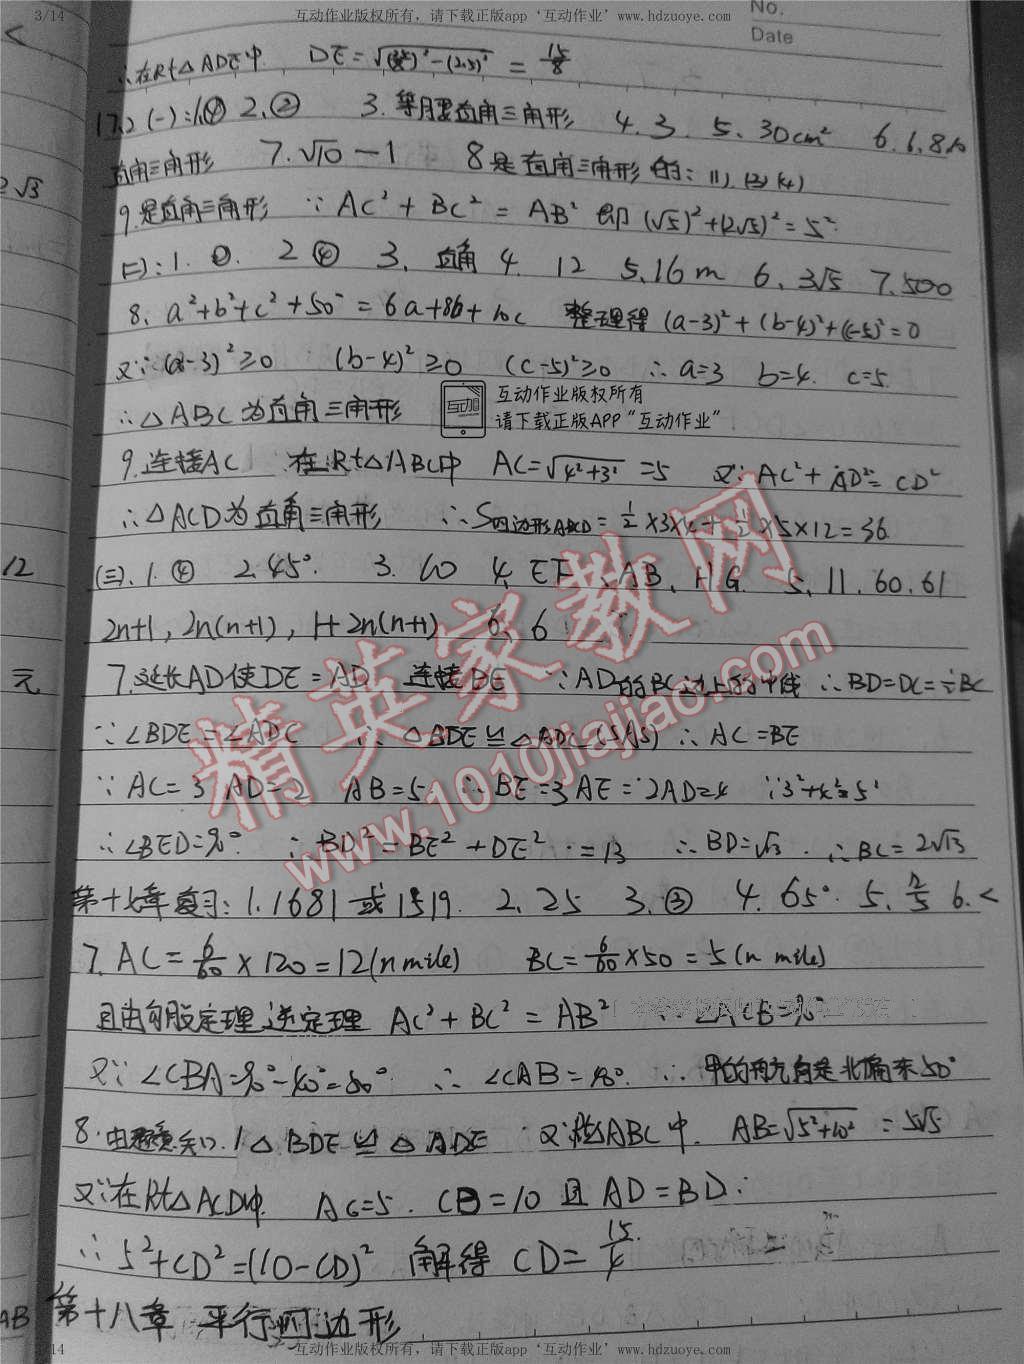 3/14 互动作业版权所有，请下载正版app‘互动作业’www.hdzuoye.com 3/14
No.
Date
<
∴在Rt△ADE中 DE=√( )²-( )² = 15/8
17.2 (一):1.④ 2.② 3.等月要直角三角形 4.3 5、30cm² 6.6.8.10
直角三角形 7.√10-1 8是直角三角形的: (1).(2)(4)
√3
9.是直角三角形 ∵ AC²+BC²=AB² 即(√5)²+(2√5)²=5²
(二):1. 2④ 3、直角 4. 12 5.16m 6. 3√5 7.500
8、a²+b²+c²+50=6a+8b+10c 整理得 (a-3)²+(b-4)²+(c-5)²=0
又∵(a-3)²≥0 (b-4)²≥0 (c-5)²≥0 ∴a=3 b=4. c=5.
互动作业版权所有
∴△ABC为直角三角形
互加
请下载正版APP“互动作业”
9.连接AC 在Rt△ABC中 AC=√4²+3²=5 又∵AC²+AD²=CD²
∴△ACD为直角三角形 ∴S四边形ABCD=1/2×3×4+1/2×5×12=36
12
(三).1.④ 2.45° 3. 10 4、EF、AB、HG. 5、11.60.61
2n+1,2n(n+1),1+2n(n+1) 6、6
元
7.延长AD使DE=AD 连接BE ∵AD为BC边上的中线 ∴BD=DC=1/2BC
∵∠BDE=∠ADC ∴△BDE≌△ADC(SAS) ∴AC=BE
∵AC=3 AD=2 AB=5 ∴BE=3 AE=2AD=4 ∵3²+4²=5²
∴∠BED=90° ∴BD²=BE²+DE²=13 ∴BD=√13 ∴BC=2√13
精英家教网
www.1010jiajiao.com
第十七章复习:1.1681或1519. 2、25 3.③ 4.65° 5. 6.<
7.AC=6/60×120=12(n mile) BC=6/60×50=5(n mile)
且由勾股定理逆定理 AC²+BC²=AB² ∴∠ACB=90°
又∵∠CBA=90°-40°=50° ∴∠CAB=40° ∴甲的航向是北偏东50°
8.由题意知.△BDE≌△ADE 又 △ABC中. AB=√5²+10²=5√5
又∵在Rt△ACD中. AC=5. CB=10 且AD=BD
∴5²+CD²=(10-CD)² 解得 CD=15/4
AB
第十八章 平行四边形
3/14 互动作业版权所有，请下载正版app‘互动作业’www.hdzuoye.com 3/14